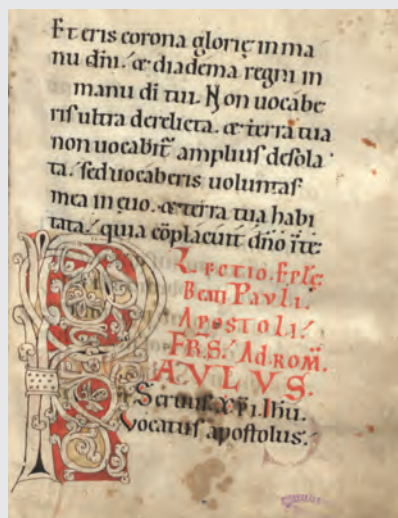 Et eris corona glorię in ma
nu dñi. & diadema regni in
manu di tui. Non uocabe
ris ultra derelicta. & terra tua
non uocabit̃ amplius desola
ta. sed uocaberis uoluntas
mea in euo. & terra tua habi
tata. quia cõplacuit dño in te:
Lectio. Eplę
Beati Pauli.
Apostoli.
FRS. Ad rom̃.
PAULUS.
Seruus xp̃i ihu.
Vocatus apostolus.